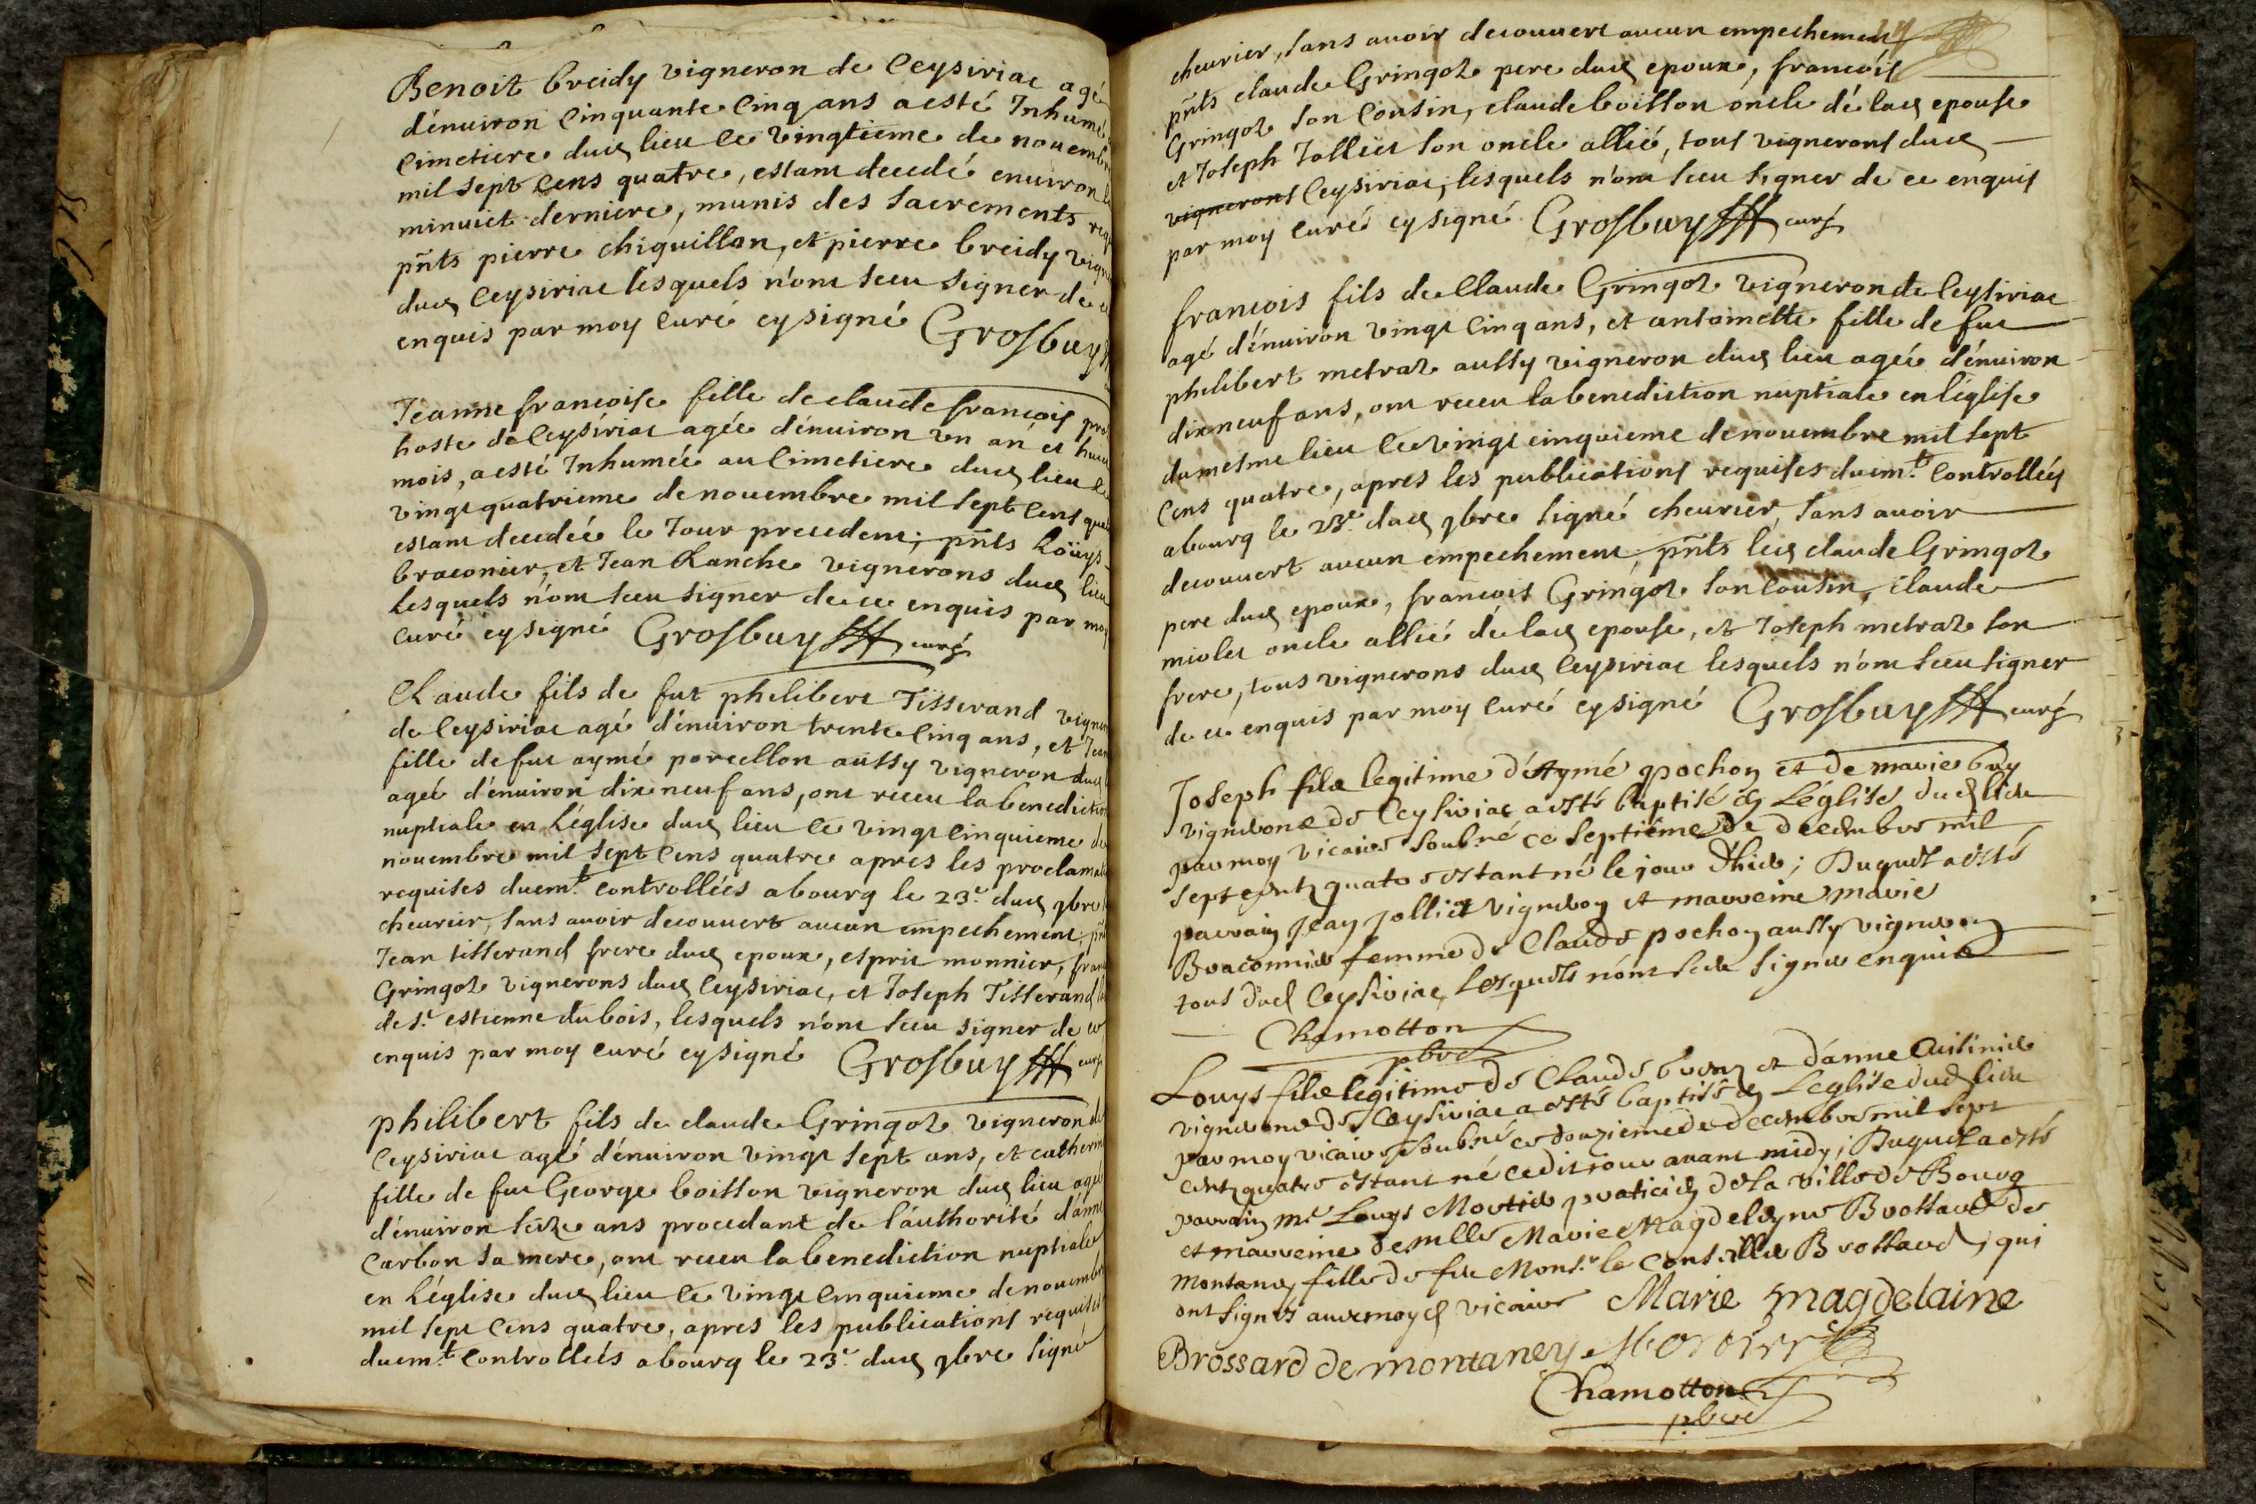 Benoit breidy vigneron de Ceysiriac agé
d'enuiron Cinquante Cinq ans a esté Inhumé
Cimetiere dud lieu Ce vingtieme de nouembre
mil sept Cens quatre, estant decedé enuiron
minuict derniere, munis des sacrements
pñts pierre chiquillon, et pierre breidy
dud Ceysiriac lesquels n'ont sceu signer de ce
enquis par moy Curé cysigné Grosbuy
Jeanne francoise fille de claude francois
hoste de Ceysiriac agée d'enuiron vn an et huict
mois, a esté Inhumée au Cimetiere dud lieu le
vingt quatrieme de nouembre mil sept Cens
estant decedée le Jour precedent; pñts Loüys
braconier, et Jean Lanche vignerons dud lieu
Lesquels n'ont sceu signer de ce enquis par moy
curé cysigné Grosbuy curé
Claude fils de fut philibert Tisserand
de Ceysiriac agé d'enuiron trente Cinq ans, et
fille de fut aymé porcellon aussy vigneron dud
agée d'enuiron dix neuf ans, ont receu la benediction
nuptiale en L'église dud lieu Ce vingt Cinquieme de
nouembre mil sept Cens quatre apres les
requises duem.t Controllées abourg le 23.e dud 9bre
cheurier, sans auoir decouuert aucun empechement,
Jean tisserand frere dud epoux, esprit monnier,
Gringoz vignerons dud Ceysiriac, et Joseph Tisserand
de s.t estienne du bois, lesquels n'ont sceu signer de ce
enquis par moy curé cysigné Grosbuy curé
philibert fils de claude Gringoz vigneron de
Ceysiriac agé d'enuiron vingt sept ans, et
fille de fut George boisson vigneron dud lieu agée
d'enuiron seize ans procedant de l'authorité d'anne
Carbon sa mere, ont receu la benediction nuptiale
en L'église dud lieu Ce vingt Cinquieme de nouembre
mil sept Cens quatre, apres les publications requises
duem.t Controllées abourg le 23.e dud 9bre signé
cheurier, sans auoir decouuert aucun empechement
pñts claude Gringoz pere dud epoux, francois
Gringoz son Cousin, claude boisson oncle dé lad epouse
et Joseph Jolliet son oncle allié, tous vignerons dud
vignerons Ceysiriac, lesquels n'ont sceu signer de ce enquis
par moy curé cysigné Grosbuy curé
francois fils de Claude Gringoz vigneron de Ceysiriac
agé d'enuiron vingt Cinq ans, et antoinette fille de fut
philibert metraz aussy vigneron dud lieu agée d'enuiron
dix neuf ans, ont receu la benediction nuptiale en L'église
du mesme lieu Ce vingt cinquieme de nouembre mil sept
Cens quatre, apres les publications requises duem.t Controllées
abourg le 23.e dud 9bre signé cheurier, sans auoir
decouuert aucun empechement, pñts led claude Gringoz
pere dud epoux, francois Gringoz son Cousin, claude
miolet oncle allié de lad epouse, et Joseph metraz son
frere, tous vignerons dud Ceysiriac lesquels n'ont sceu signer
de ce enquis par moy curé cysigné Grosbuy curé
Joseph filz legitime d'Aymé pochon et de marie buy
vignerons de Ceysiriac a esté baptisé en L'église dud lieu
par moy vicaire soub.né ce septiéme de decembre mil
sept centz quatre estant né le jour d'hier; Duquel a esté
parrain Jean Jolliet vigneron et marreine marie
Braconnier femme de Claude pochon aussy vigneron
tous dud Ceysiriac, Lesquels n'ont sceu signer enquis
Chamotton
pbre
Louys filz legitime de Claude et d'anne Cuisinier
vignerons de Ceysiriac a esté baptisé en L'église dud lieu
par moy vicaire soub.né ce douzieme de decembre mil sept
centz quatre estant né cedit jour auant midy; Duquel a esté
parrain m.e Louys Mortier praticien de la ville de Bourg
et marreine demlle Marie Magdeleyne Brossard de
Montaney fille de feu Mons.r le Conseiller Brossard, qui
ont signés auec moy d vicaire Marie magdelaine
Brossard de montaney Mortier
Chamotton
pbre